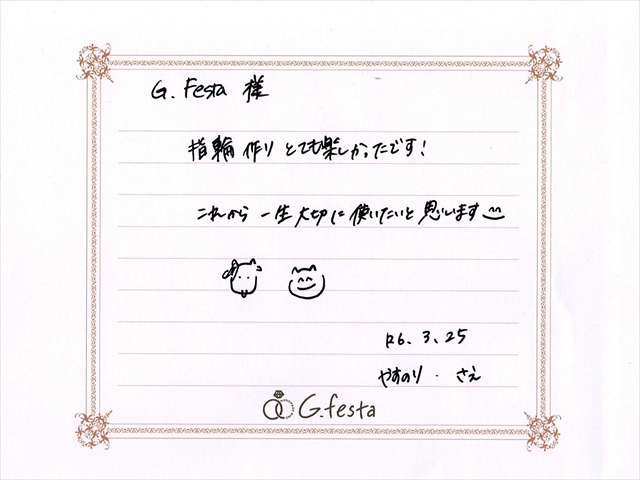 G. Festa 様
指輪作りとても楽しかったです!
これから一生大切に使いたいと思います
R6. 3. 25
やすのり . さえ
G.festa